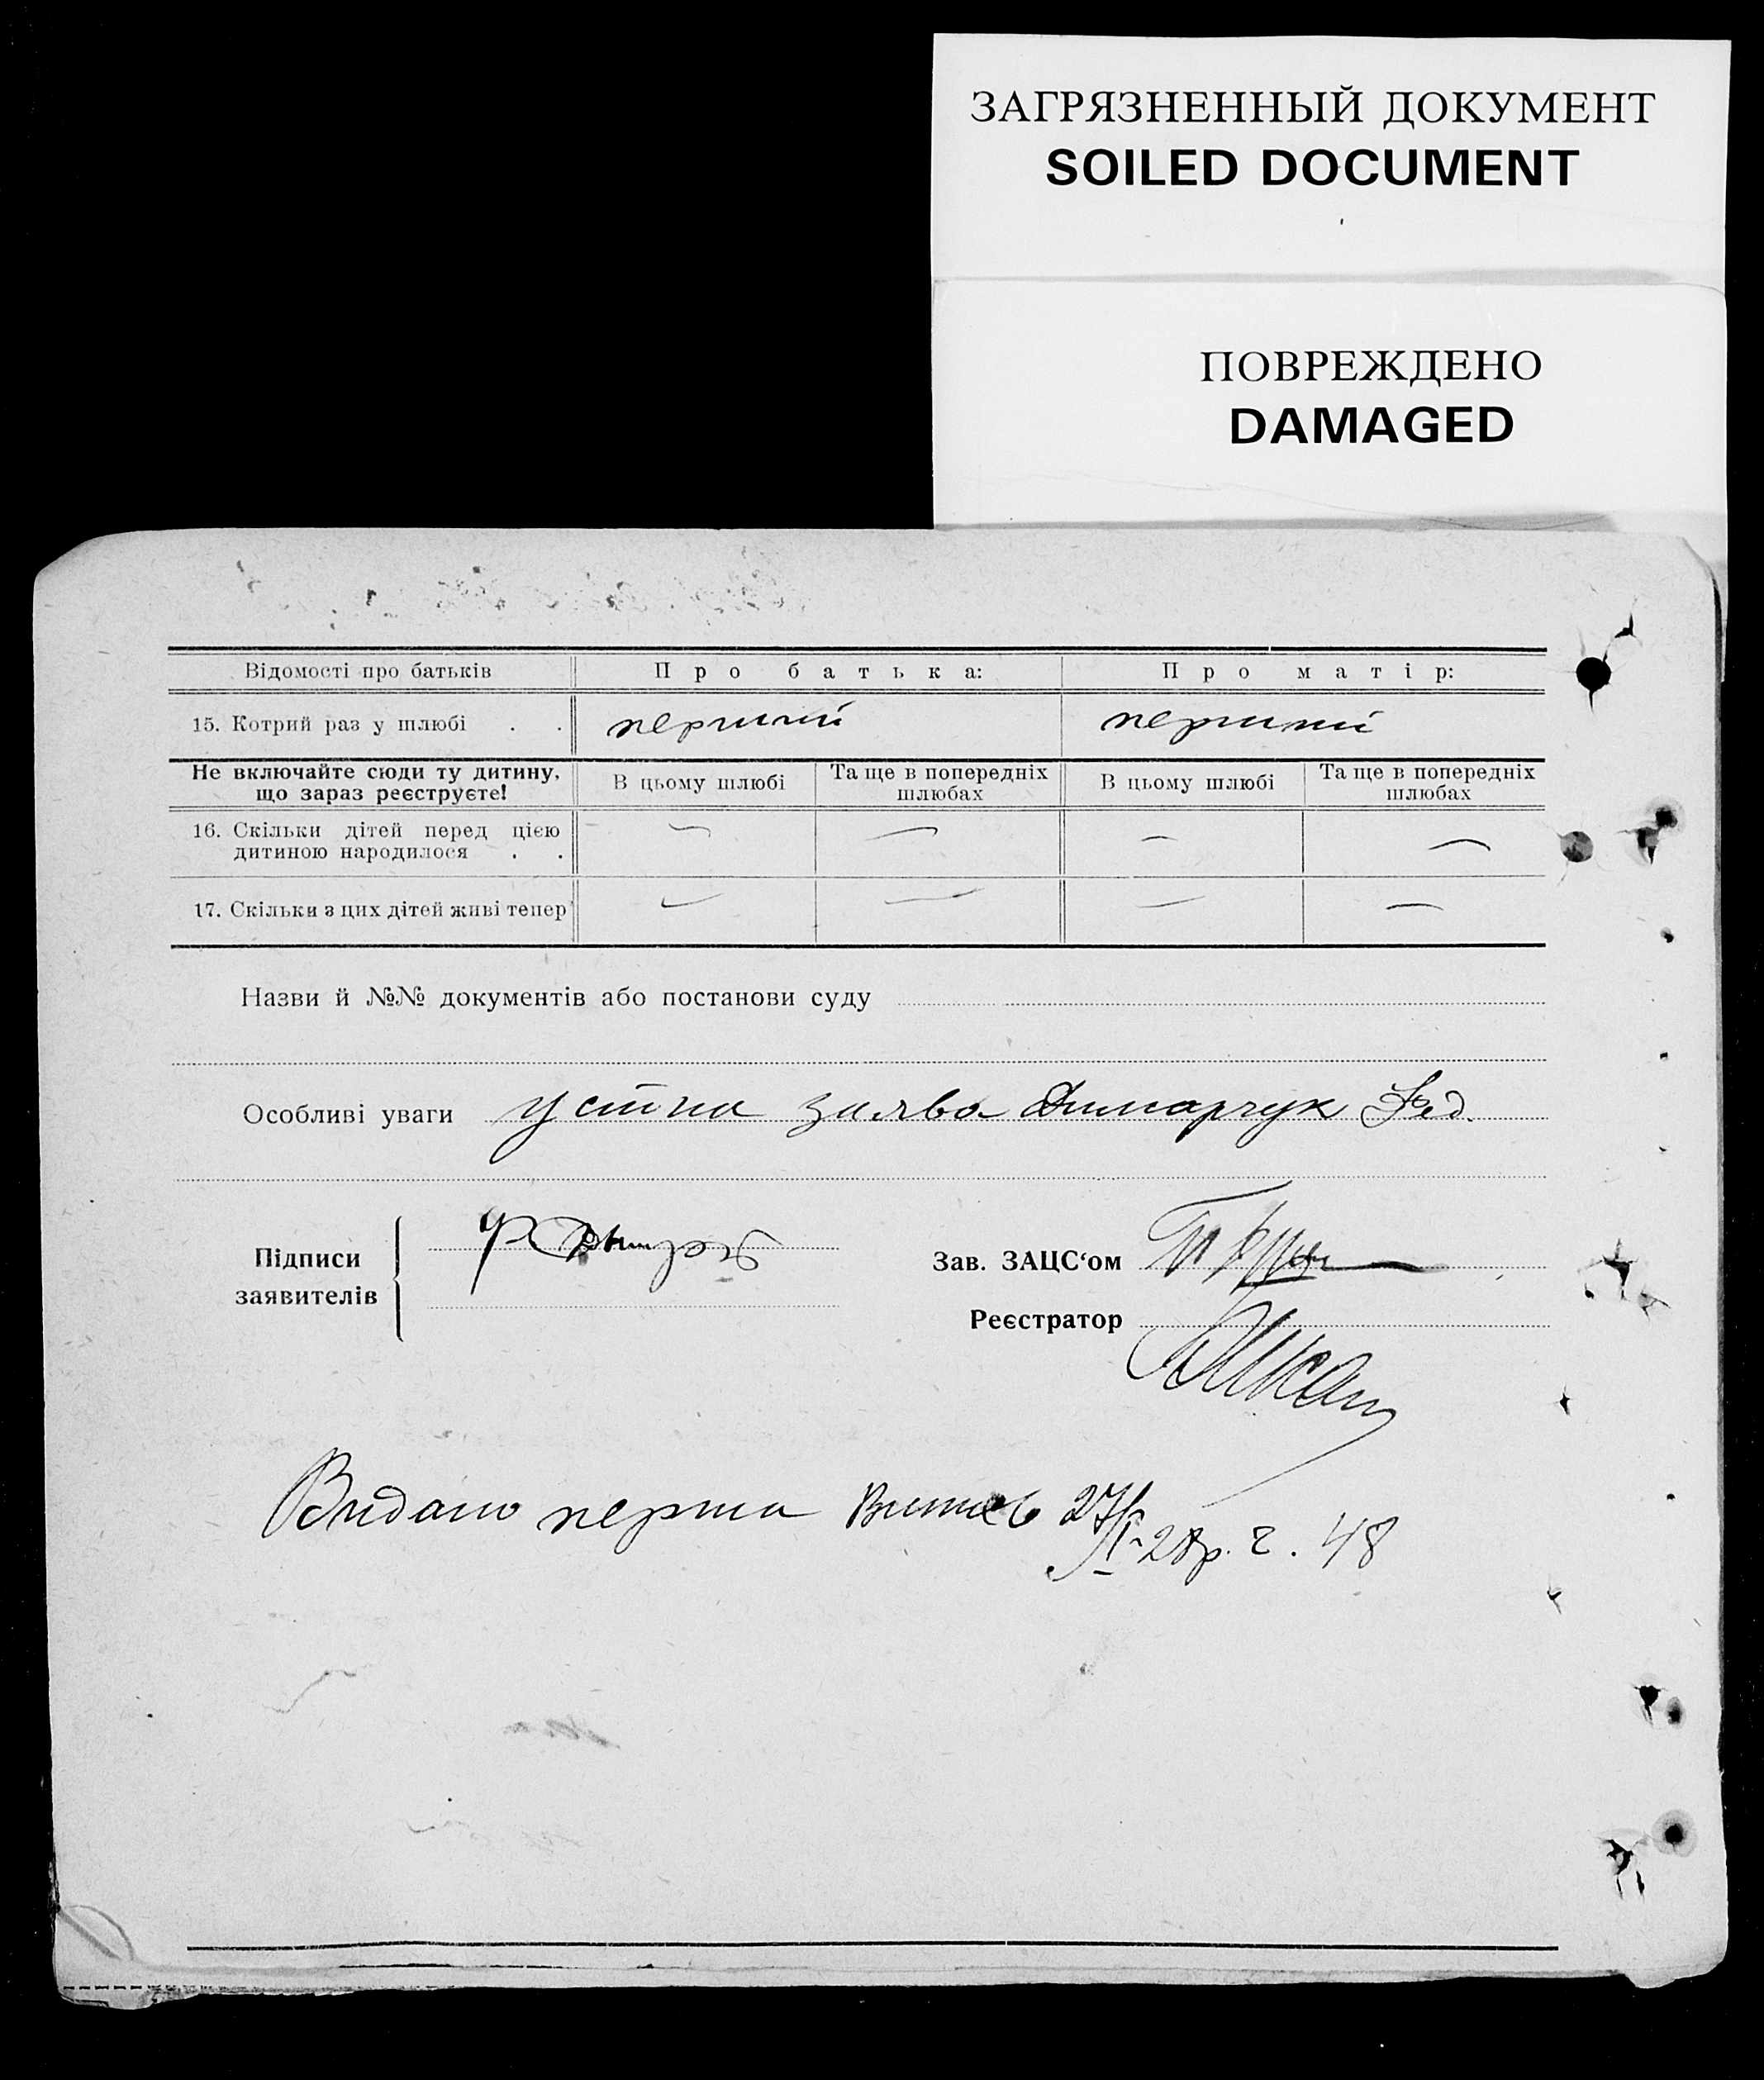 ЗАГРЯЗНЕННЫЙ ДОКУМЕНТ
SOILED DOCUMENT
ПОВРЕЖДЕНО
DAMAGED
Відомості про батьків Про батька: Про матір:
15. Котрий раз у шлюбі . . перший перший
Не включайте сюди ту дитину, що зараз реєструєте! В цьому шлюбі Та ще в попередніх шлюбах В цьому шлюбі Та ще в попередніх шлюбах
16. Скільки дітей перед цією дитиною народилося . . — — — —
17. Скільки з цих дітей живі тепер — — — —
Назви й №№ документів або постанови суду
Особливі уваги устна заява Димарчук Фед.
Підписи заявителів
Зав. ЗАЦС‘ом
Реєстратор
Видано перша 27/
VI-28р. 48